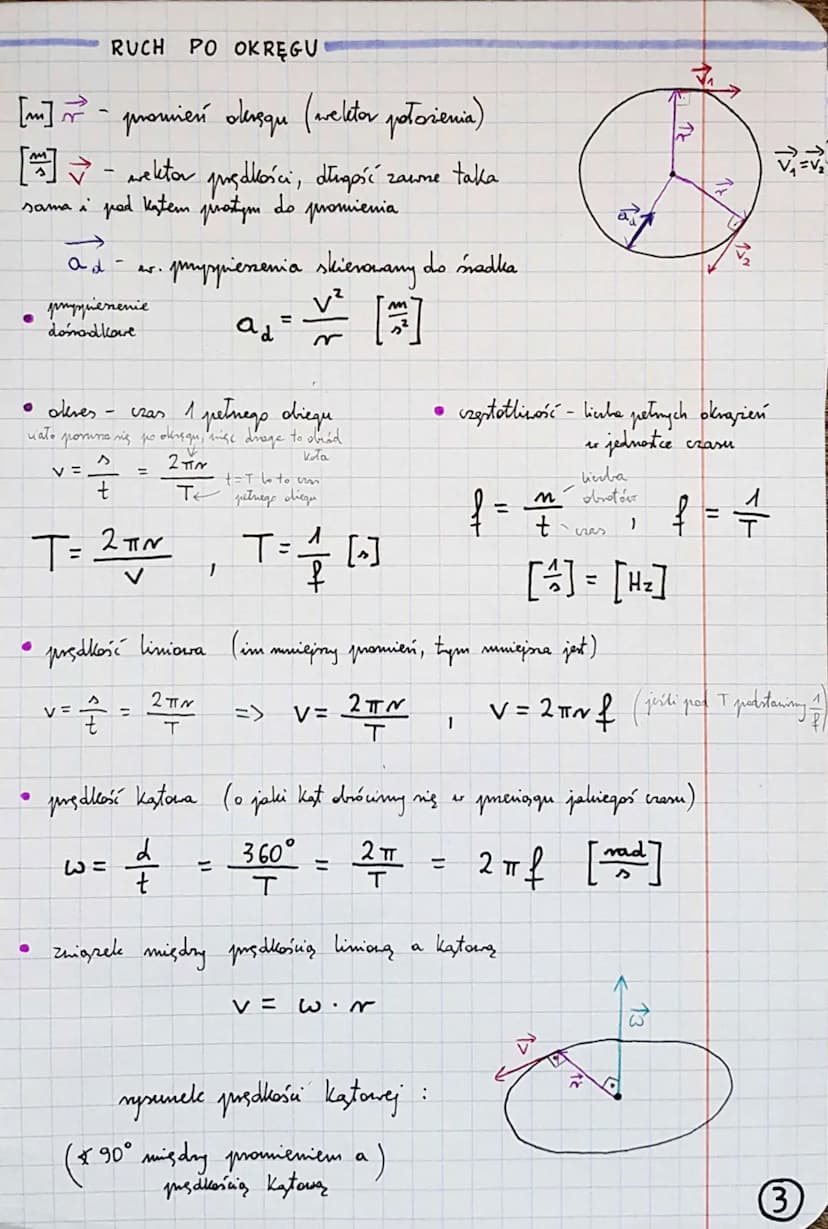 RUCH PO OKRĘGU
[m] r⃗ - promień okręgu (wektor położenia)
[m/s] v⃗ - wektor prędkości, długość zawsze taka
sama i pod kątem prostym do promienia
a⃗d - w. przyspieszenia skierowany do środka
• przyspieszenie
dośrodkowe
a_d = v²/r [m/s²]
v⃗₁
r⃗
r⃗
a⃗d
v⃗₂
v⃗₁=v⃗₂
• okres - czas 1 pełnego obiegu
ciało porusza się po okręgu, więc droga to obwód
koła
v = s/t = 2πr/T
t=T bo to czas
pełnego obiegu
T = 2πr/v , T = 1/f [s]
• częstotliwość - liczba pełnych okrążeń
w jednostce czasu
f = n/t , f = 1/T
liczba
obrotów
czas
[1/s] = [Hz]
• prędkość liniowa (im mniejszy promień, tym mniejsza jest)
v = s/t = 2πr/T => v = 2πr/T , v = 2πrf (jeśli pod T podstawimy 1/f)
• prędkość kątowa (o jaki kąt obrócimy się w przeciągu jakiegoś czasu)
ω = d/t = 360°/T = 2π/T = 2πf [rad/s]
• związek między prędkością liniową a kątową
v = ω · r
ω⃗
v⃗
r⃗
rysunek prędkości kątowej :
(∢ 90° między promieniem a)
prędkością kątową
3